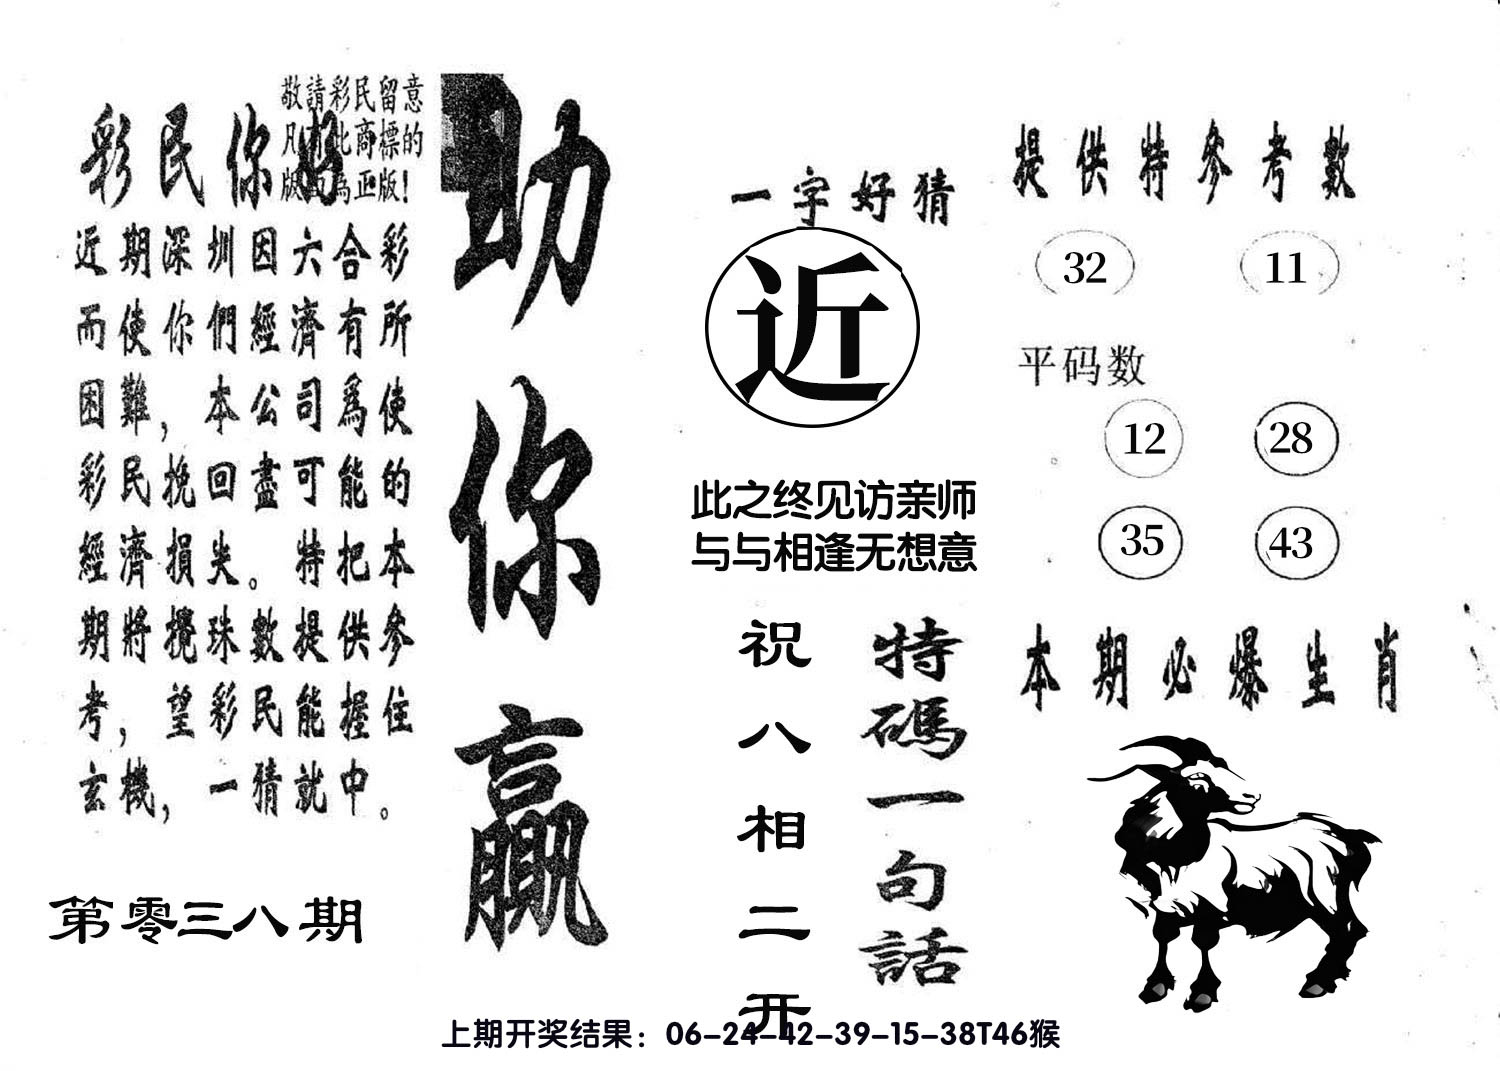 敬請彩民留意
凡有此商標的
版面為正版！
彩民你好
近期深圳因六合彩
而使你們經濟有所
困難，本公司爲使
彩民挽回盡可能的
經濟損失。特把本
期將攪珠數提供參
考，望彩民能握住
玄機，一猜就中。
第零三八期
助你贏
一字好猜
近
此之终见访亲师
与与相逢无想意
特碼一句話
祝八相二开
提供特參考數
32 11
平码数
12 28
35 43
本期必爆生肖
上期开奖结果：06-24-42-39-15-38T46猴